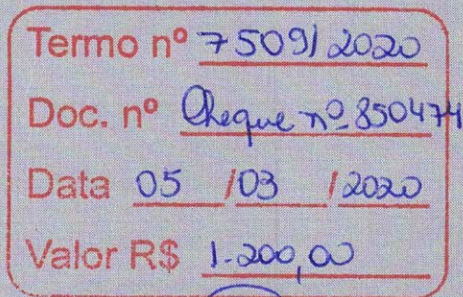 Termo nº 7509/2020
Doc. nº Cheque nº 850474
Data 05 /03 /2020
Valor R$ 1.200,00